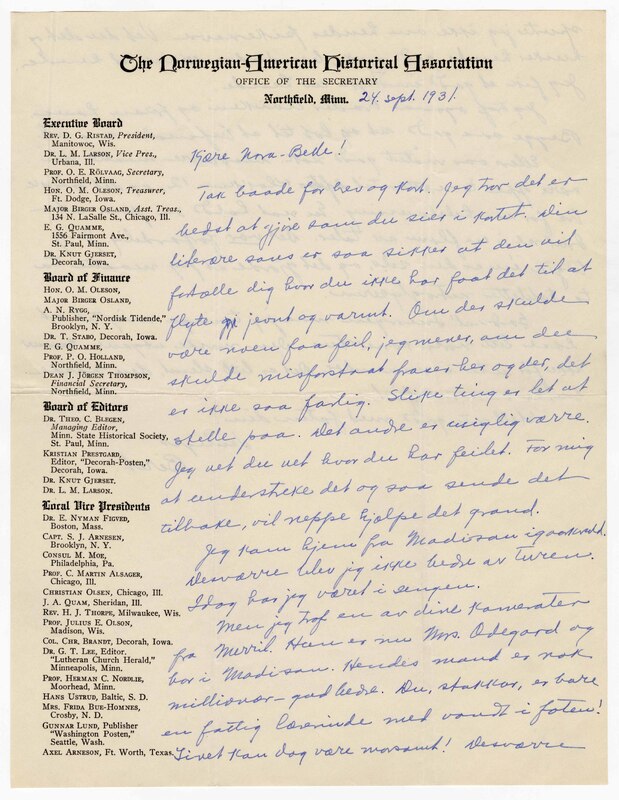 The Norwegian-American Historical Association
OFFICE OF THE SECRETARY
Northfield, Minn. 24. sept. 1931.
Executive Board
REV. D. G. RISTAD, President,
Manitowoc, Wis.
DR. L. M. LARSON, Vice Pres.,
Urbana, Ill.
PROF. O. E. RÖLVAAG, Secretary,
Northfield, Minn.
HON. O. M. OLESON, Treasurer,
Ft. Dodge, Iowa.
MAJOR BIRGER OSLAND, Asst. Treas.,
134 N. LaSalle St., Chicago, Ill.
E. G. QUAMME,
1556 Fairmont Ave.,
St. Paul, Minn.
DR. KNUT GJERSET,
Decorah, Iowa.
Board of Finance
HON. O. M. OLESON,
MAJOR BIRGER OSLAND,
A. N. RYGG,
Publisher, "Nordisk Tidende,"
Brooklyn, N. Y.
DR. T. STABO, Decorah, Iowa.
E. G. QUAMME,
PROF. P. O. HOLLAND,
Northfield, Minn.
DEAN J. JÖRGEN THOMPSON,
Financial Secretary,
Northfield, Minn.
Board of Editors
DR. THEO. C. BLEGEN,
Managing Editor,
Minn. State Historical Society,
St. Paul, Minn.
KRISTIAN PRESTGARD,
Editor, "Decorah-Posten,"
Decorah, Iowa.
DR. KNUT GJERSET.
DR. L. M. LARSON.
Local Vice Presidents
DR. E. NYMAN FIGVED,
Boston, Mass.
CAPT. S. J. ARNESEN,
Brooklyn, N. Y.
CONSUL M. MOE,
Philadelphia, Pa.
PROF. C. MARTIN ALSAGER,
Chicago, Ill.
CHRISTIAN OLSEN, Chicago, Ill.
J. A. QUAM, Sheridan, Ill.
REV. H. J. THORPE, Milwaukee, Wis.
PROF. JULIUS E. OLSON,
Madison, Wis.
COL. CHR. BRANDT, Decorah, Iowa.
DR. G. T. LEE, Editor,
"Lutheran Church Herald,"
Minneapolis, Minn.
PROF. HERMAN C. NORDLIE,
Moorhead, Minn.
HANS USTRUD, Baltic, S. D.
MRS. FRIDA BUE-HOMNES,
Crosby, N. D.
GUNNAR LUND, Publisher
"Washington Posten,"
Seattle, Wash.
AXEL ARNESON, Ft. Worth, Texas.
Kjære Nora-Belle!
Tak baade for brev og kort. Jeg tror det er
bedst at gjøre som du sier i kortet. Din
literære sans er saa sikker at den vil
fortælle dig hvor du ikke har faat det til at
flyte jevnt og varmt. Om der skulde
være noen faa feil, jeg mener, om du
skulde misforstaat fraser her og der, det
er ikke saa farlig. Slike ting er let at
stelle paa. Det andre er usiglig værre.
Jeg vet du vet hvor du har feilet. For mig
at understreke det og saa sende det
tilbake, vil neppe hjælpe det grand.
Jeg kom hjem fra Madison igaarkveld.
Desværre blev jeg ikke bedre av turen.
Idag har jeg været i sengen.
Men jeg traf en av dine kamerater
fra Merril. Hun er nu Mrs. Odegard og
bor i Madison. Hendes mand er nok
millionær - god bedre. Du, stakkar, er bare
en fattig lærerinde med vondt i foten!
Livet kan dog være morsomt! Desværre